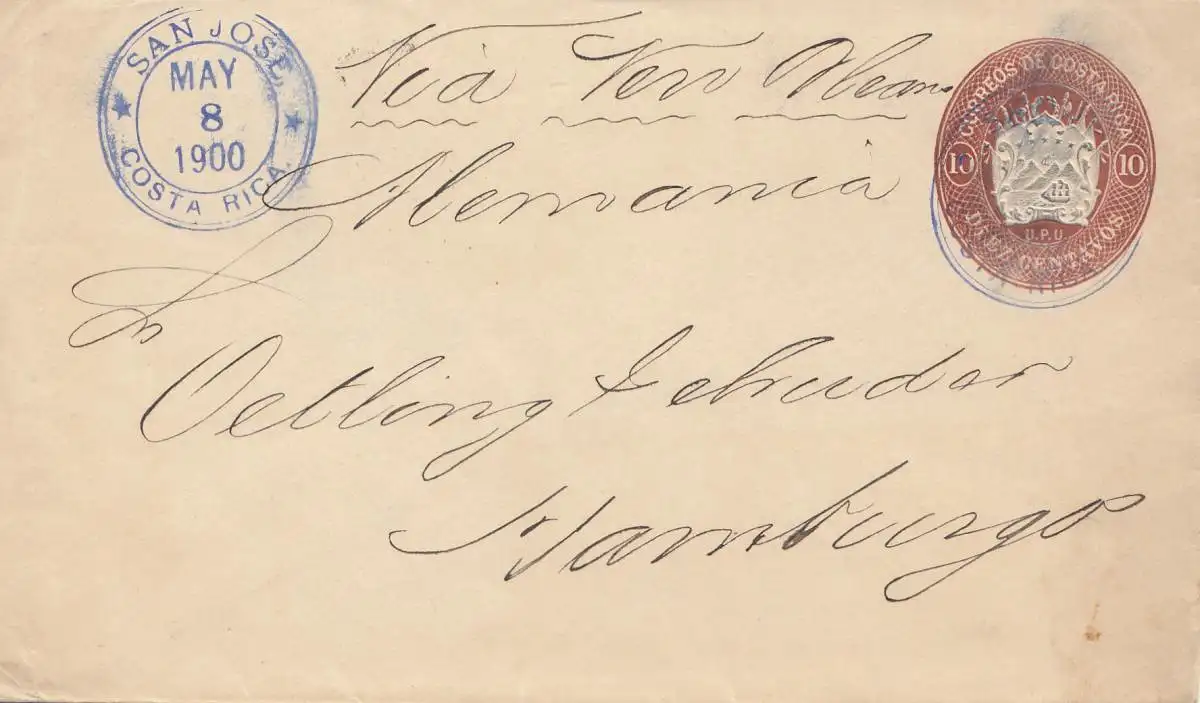 SAN JOSE.
MAY
8
1900
COSTA RICA.
Via New Orleans
Alemania
CORREOS DE COSTA RICA
10 10
U.P.U.
DIEZ CENTAVOS
Oetling Gebruder
Hamburgo